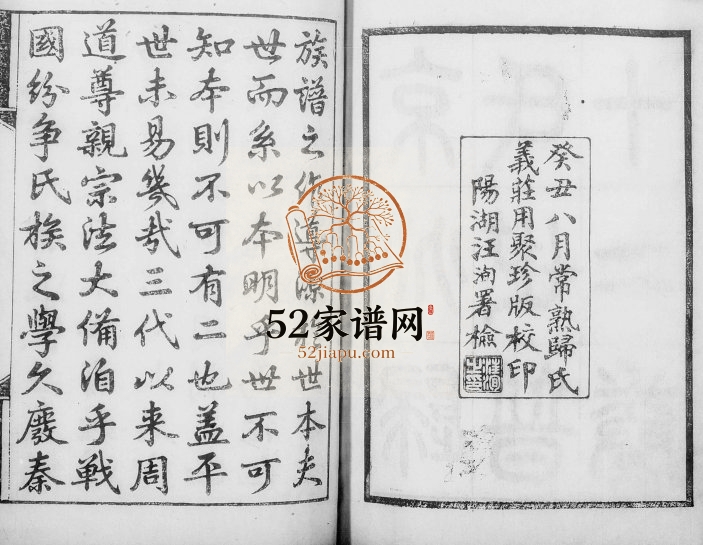 癸丑八月常熟歸氏
義莊用聚珍版校印
陽湖汪洵署檢
族譜之作導源於世本夫
世而系以本明乎世不可
知本則不可有二也蓋平
世未易幾哉三代以来周
道尊親宗法大備洎乎戰
國紛争氏族之學久廢秦
52家谱网
52jiapu.com